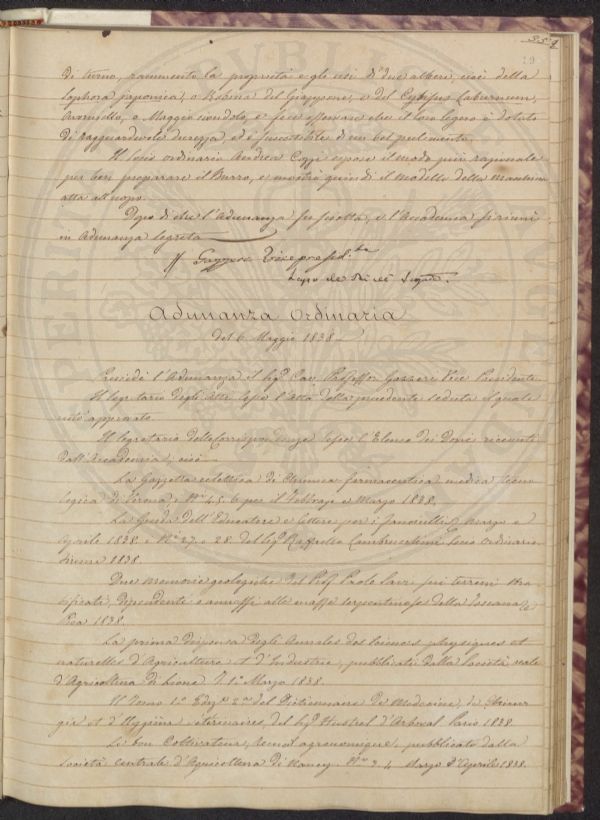 29
di turno, rammentò la proprietà e gli usi di due alberi, cioè della
Sophora japonica, o Robinia del Giappone, e del Cytisus Laburnum,
Avorniello, o Maggio ciondolo, e fece osservare che il loro legno è dotato
di ragguardevole durezza, ed è suscettibile d'un bel pulimento.
Il Socio ordinario Andrea Cozzi espose il modo più razionale
per ben preparare il Burro, e mostrò quindi il modello della macchina
atta all'uopo.
Dopo di che l'Adunanza fu sciolta, e l'Accademia si riunì
in Adunanza segreta
Gazzeri Vicepresid.te
Adunanza Ordinaria
del 6 Maggio 1838
Presiede l'Adunanza il Sig.r Cav. Professor Gazzeri Vice Presidente.
Il Segretario degli Atti lesse l'Atto della precedente seduta il quale
restò approvato.
Il Segretario delle Corrispondenze lesse l'Elenco dei Doni ricevuti
dall'Accademia, cioè
La Gazzetta eclettica di Chimica farmaceutica medica tecno
logica di Verona, N.i 4. 5. 6. per il Febbrajo e Marzo 1838.
La Guida dell'Educatore e letture per i fanciulli Marzo e
Aprile 1838. N.i 27. e 28. del Sig.r Raffaello Lambruschini Socio ordinario.
Firenze 1838.
Due memorie geologiche del Prof. Paolo Savi sui terreni stra
tificati, dipendenti e annessi alle masse serpentinose della Toscana
Pisa 1838.
La prima dispensa degli Annales des Sciences physiques et
naturelles d'Agriculture et d'Industrie, pubblicati dalla Società reale
d'Agricoltura di Lione T. 1.o Marzo 1838.
Il Tomo 1.o Ediz.e 2.a del Dictionnaire de Medecine, de Chirur
gie et d'Hygiène vétérinaires, del Sig.r Hurtrel d'Arboval Paris 1838.
Le bon Cultivateur, Recueil agronomique, pubblicato dalla
Società Centrale d'Agricoltura di Nancy. N.i 3. 4. Marzo e Aprile 1838.